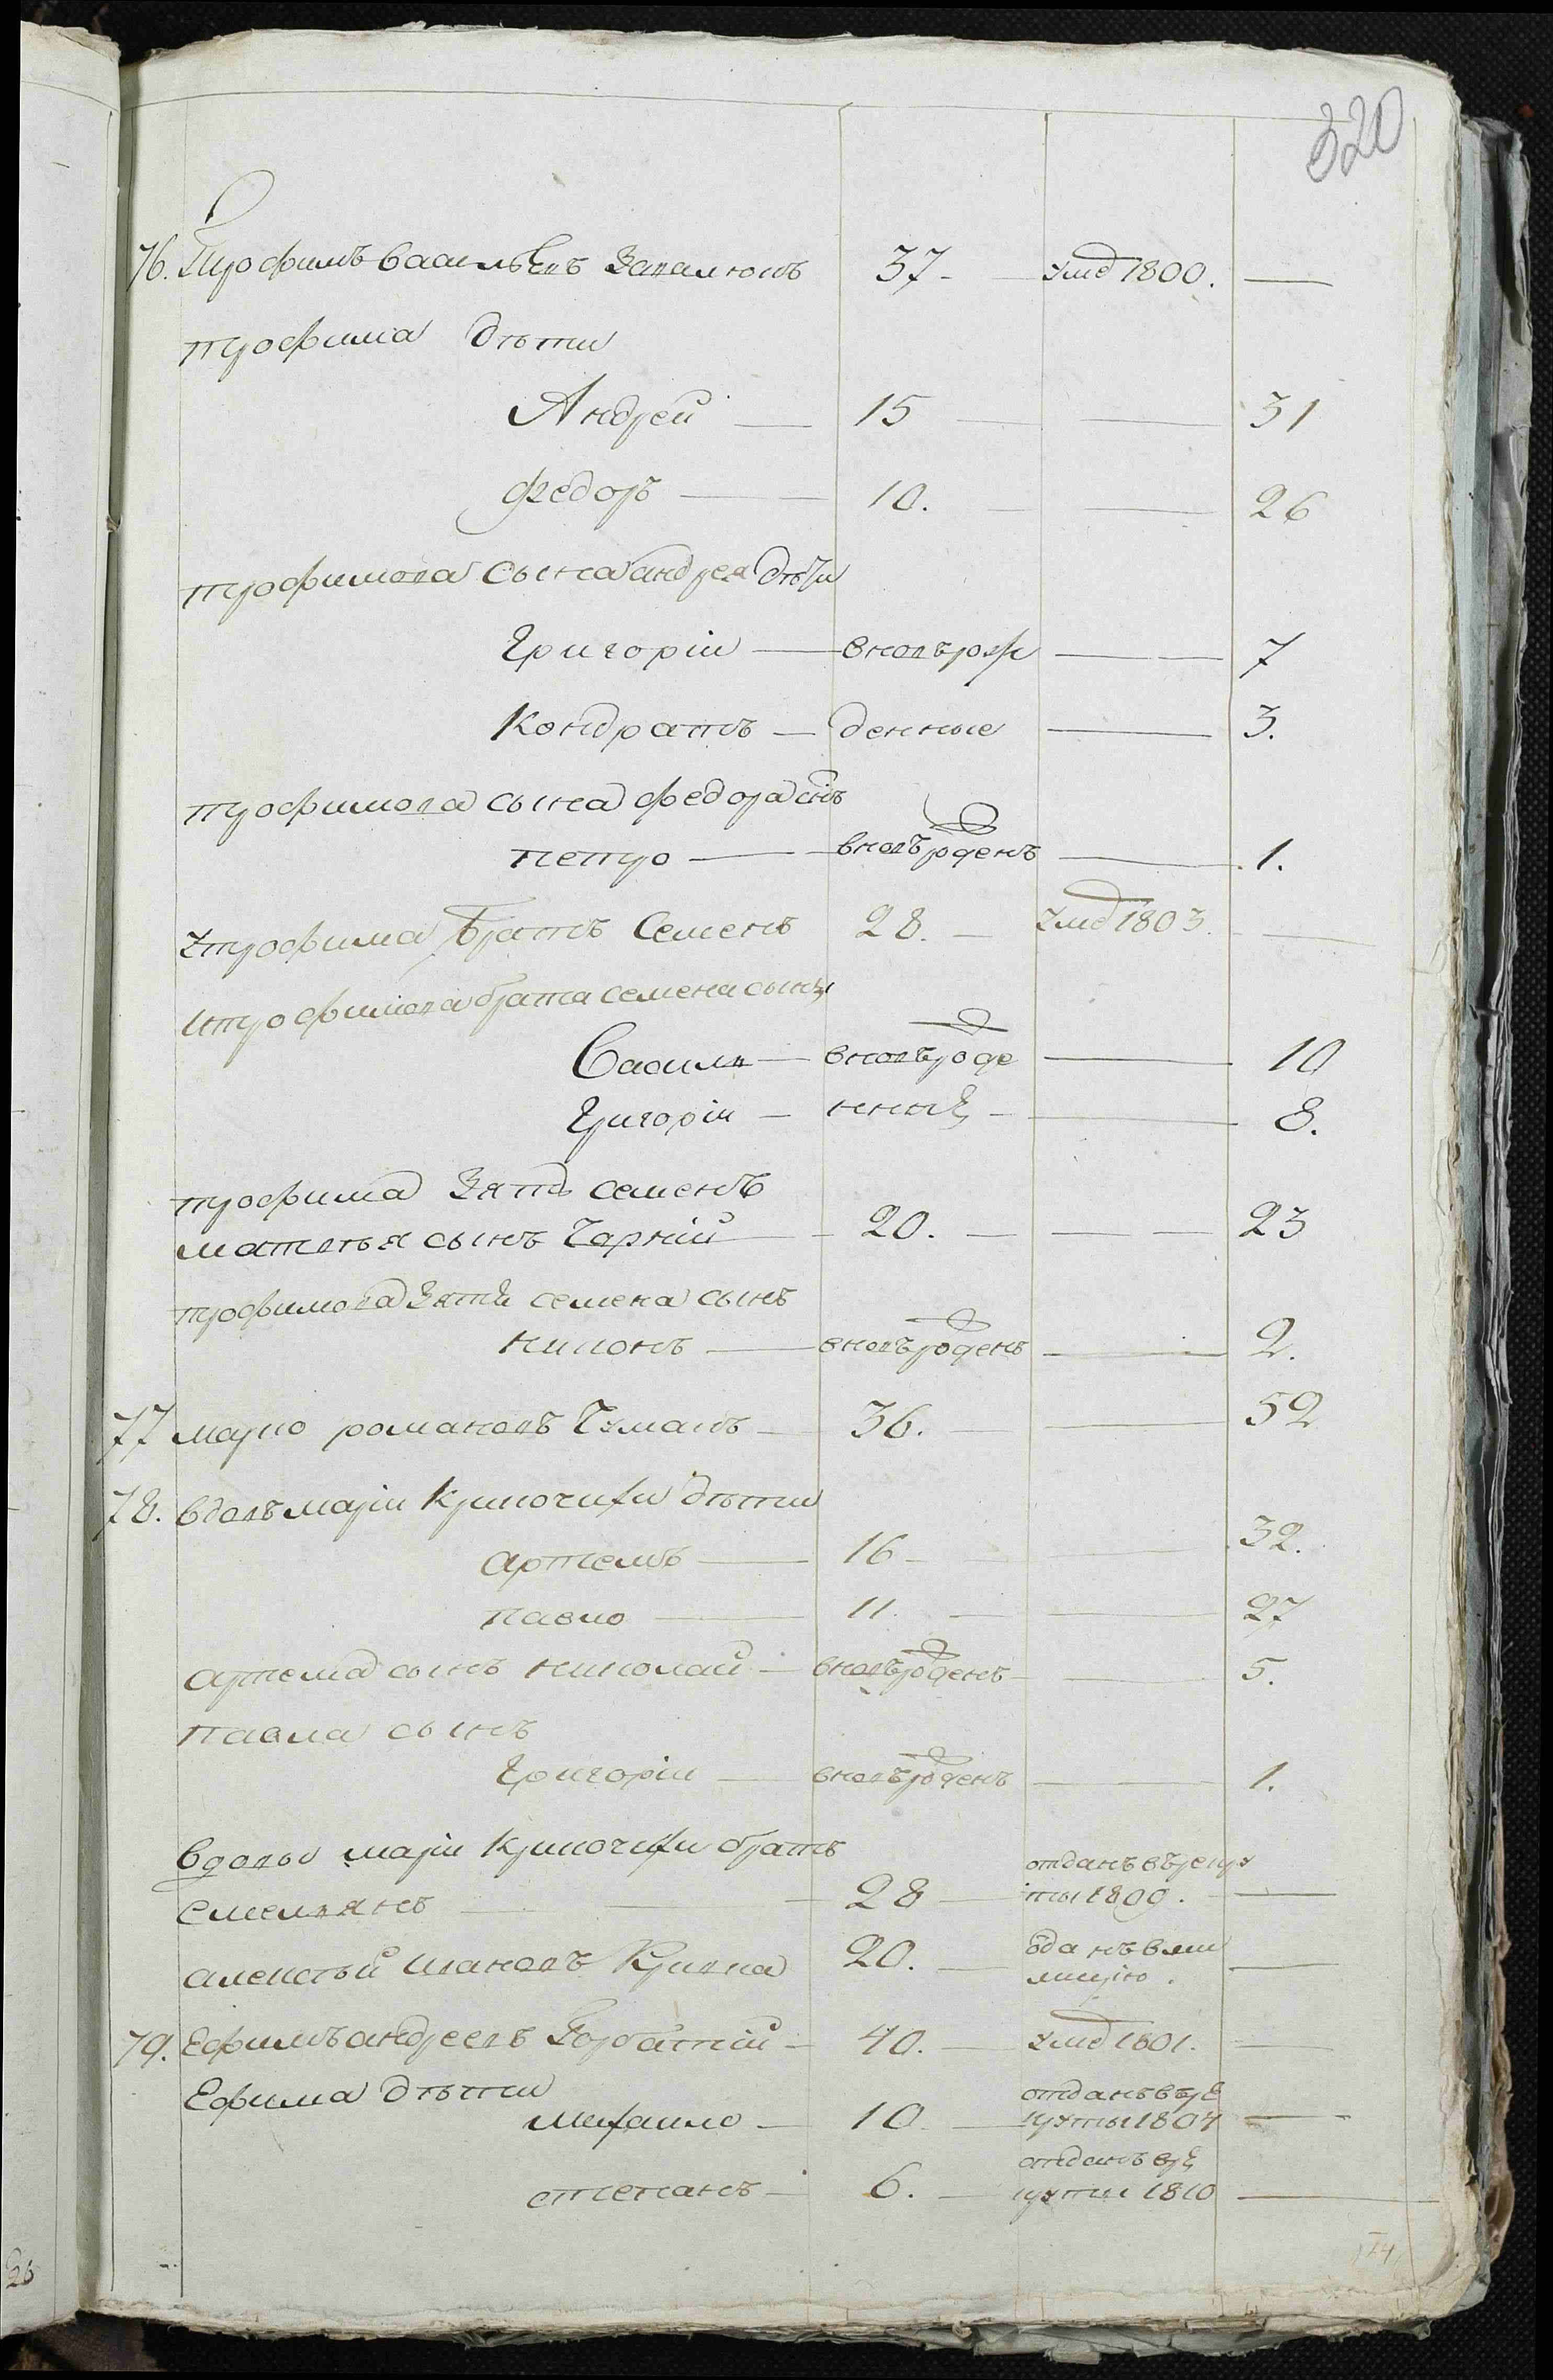 320
76. Трофимъ Васильевъ 37 - умр 1800. —
трофима дѣти
Андрей — 15 — 31
федоръ — 10. — 26
трофимова сына андрея дѣти
Григорій — вновь рож — 7
Кондратъ — денные — 3.
трофимова сына федора снъ
петро — вновь рожденъ — 1.
трофима Братъ Семенъ 28. — умр 1803. —
трофимова брата семена сыны
Васили — вновь рожде — 10
Григорій — нныѣ — 8.
трофима зять семенъ
матвѣя сынъ Чарній — 20. — 23
трофимова зятя семена сынъ
никонъ — вновь рожденъ — 2.
77 марко романовъ Чуманъ — 36. — 52
78. вдовы маріи дѣти
артемъ — 16 — 32.
павло — 11 — 27
артема сынъ николай — вновь рожденъ — 5.
павла сынъ
Григорій — вновь рожденъ — 1.
вдовы маріи братъ
емельянъ — 28 — отданъ въ реку
ты 1809. —
алексѣй ивановъ 20. — ѿданъ в ми
лицію. —
79. Ефимъ андреевъ Горбатій — 40. — умр 1801. —
Ефима дѣти
михаило — 10. — отданъ въ ре
круты 1807 —
степанъ — 6. — отданъ в ре
круты 1810 —
26